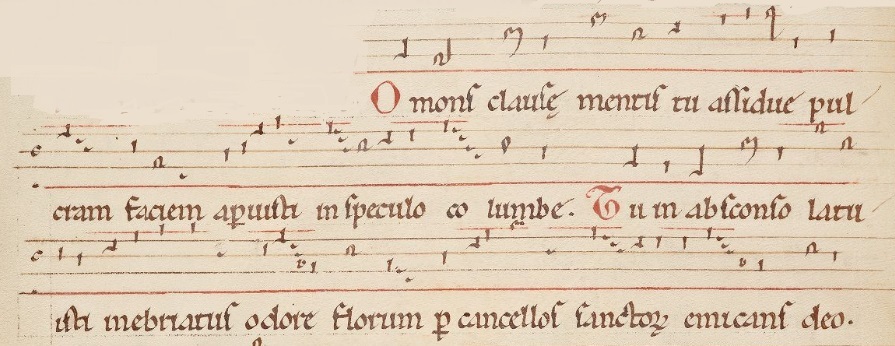 O monſ clauſę mentiſ tu aſſidue pul
cram faciem aꝑuiſti in ſpeculo co lumbe. Tu in abſconſo latu
iſti inebriatuſ odore florum ꝑ cancelloſ ſanctoꝝ emicanſ deo.